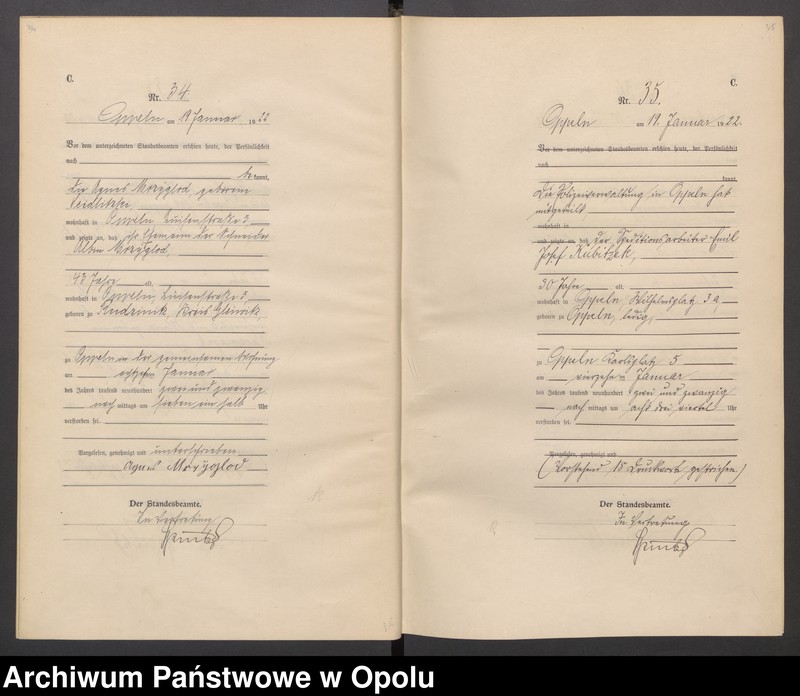 C.
Nr. 34
Oppeln am 19 Januar 1922
Vor dem unterzeichneten Standesbeamten erschien heute, der Persönlichkeit
nach
be kannt,
die Agnes Mozyglod, geborene
wohnhaft in Oppeln
und zeigte an, daß ihr Ehemann der Schneider
Albin Mozyglod,
43 Jahre alt,
wohnhaft in Oppeln,
geboren zu Rudzinik, Kreis Gleiwitz,
zu Oppeln in der gemeinsamen Wohnung
am achtzehn Januar
des Jahres tausend neunhundert zwei und zwanzig
nach mittags um sieben ein halb Uhr
verstorben sei.
Vorgelesen, genehmigt und unterschrieben
Agnes Mozyglod
Der Standesbeamte.
In Vertretung
C.
Nr. 35.
Oppeln am 19. Januar 1922.
Vor dem unterzeichneten Standesbeamten erschien heute, der Persönlichkeit
nach
kannt,
Die Polizeiverwaltung in Oppeln hat
mitgeteilt
wohnhaft in
und zeigte an, daß der Speditionsarbeiter Emil
Josef Kubitzek,
30 Jahre alt,
wohnhaft in Oppeln, Wilhelmsplatz 3a,
geboren zu Oppeln, ledig,
zu Oppeln Karlsplatz 5
am vierzehn Januar
des Jahres tausend neunhundert zwei und zwanzig
nach mittags um acht drei viertel Uhr
verstorben sei.
Vorgelesen, genehmigt und
(Vorstehend 15 Druckworte gestrichen)
Der Standesbeamte.
In Vertretung
Archiwum Państwowe w Opolu